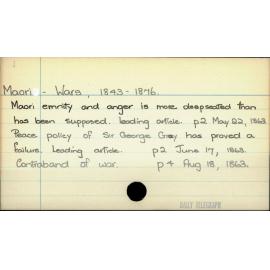 Maori - Wars, 1843-1876.
Maori enmity and anger is more deepseated than
has been supposed. Leading article. p2 May 22, 1863.
Peace policy of Sir George Grey has proved a
failure. Leading article. p2 June 17, 1863.
Contraband of war. p4 Aug 18, 1863.
DAILY TELEGRAPH